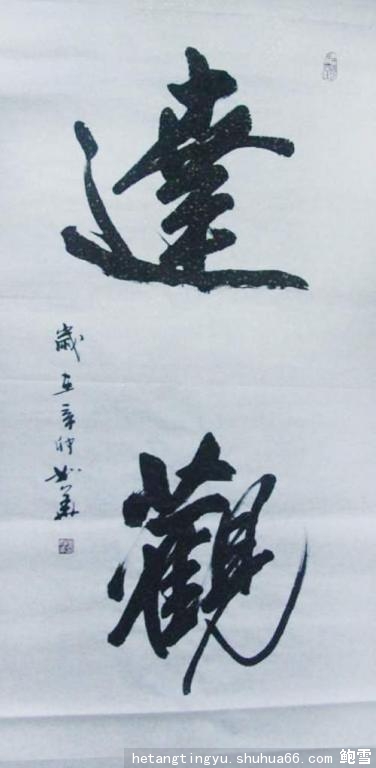 達觀
歲在辛卯
hetangtingyu.shuhua66.com 鲍雪